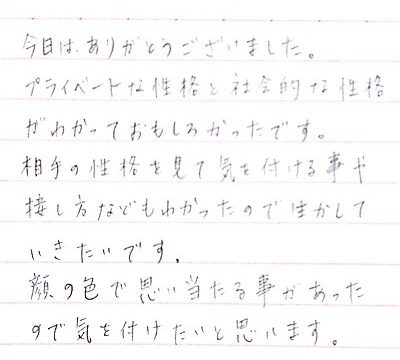 今日は、ありがとうございました。
プライベートな性格と社会的な性格
がわかっておもしろかったです。
相手の性格を見て気を付ける事や
接し方などもわかったので生かして
いきたいです。
顔の色で思い当たる事があった
ので気を付けたいと思います。